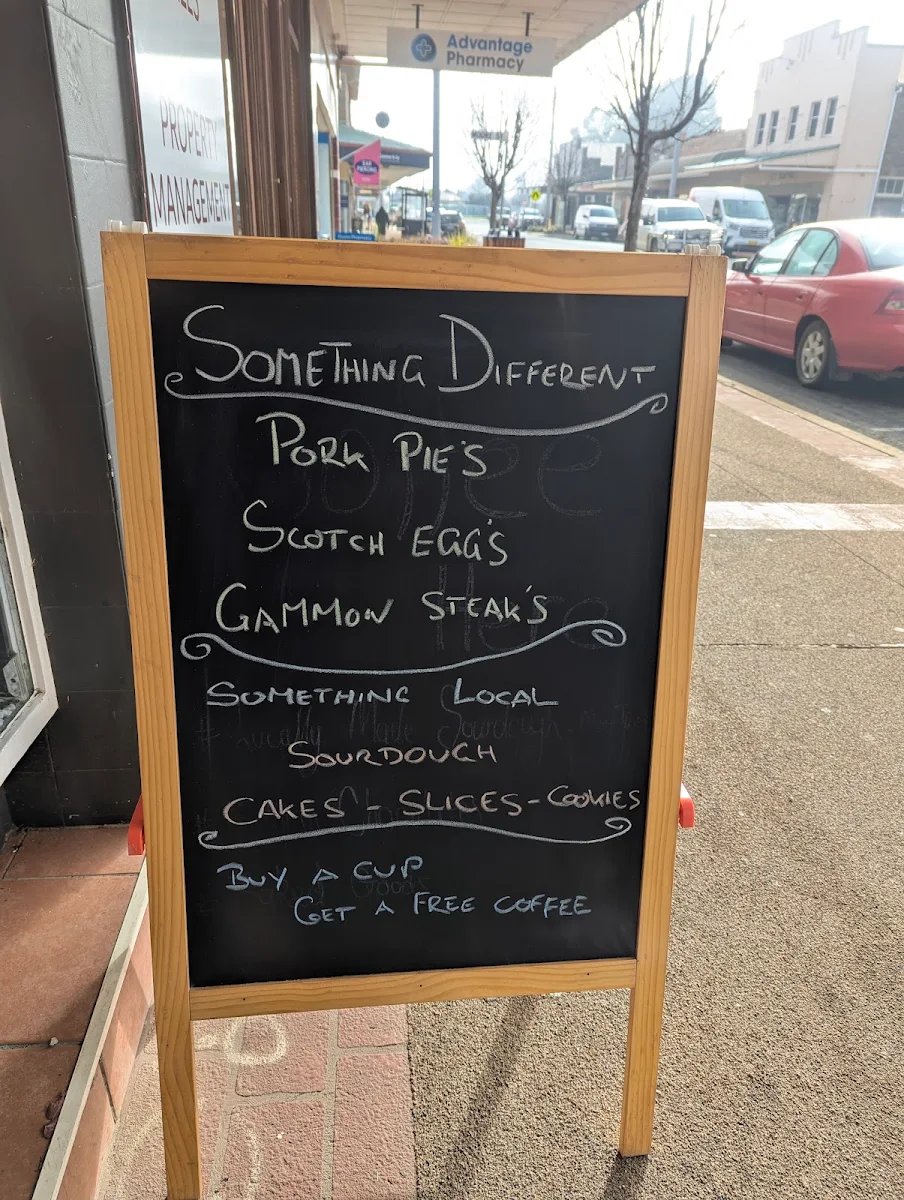 PROPERTY
MANAGEMENT
Advantage
Pharmacy
SOMETHING DIFFERENT
PORK PIE'S
SCOTCH EGG'S
GAMMON STEAK'S
SOMETHING LOCAL
SOURDOUGH
CAKES - SLICES - COOKIES
BUY A CUP
GET A FREE COFFEE